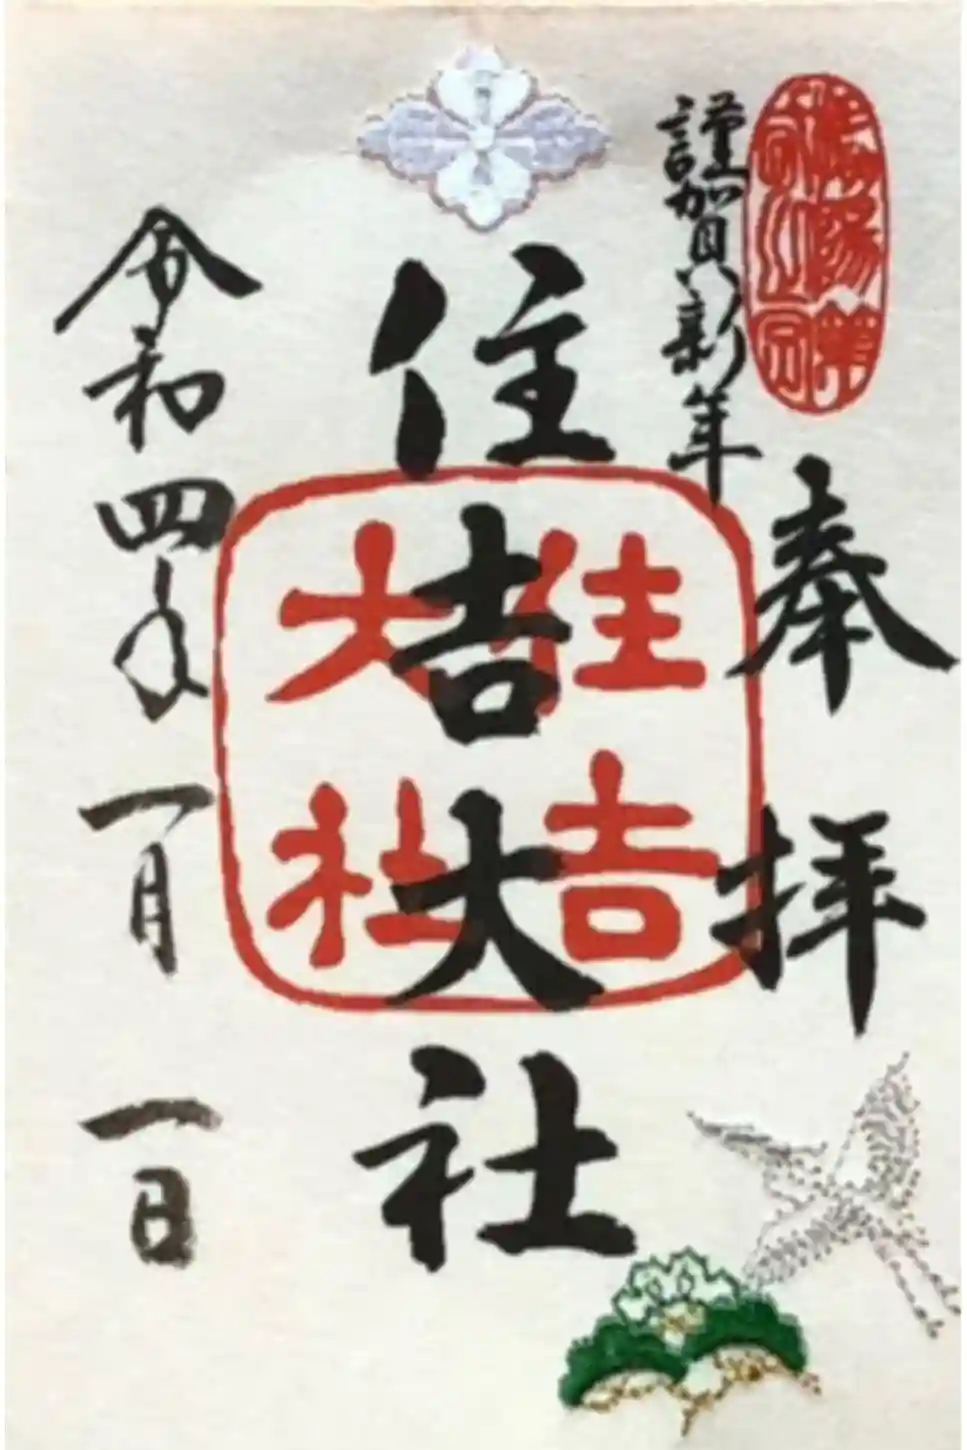 謹賀新年
奉拝
住吉大社
住吉
大社
令和四年一月一日